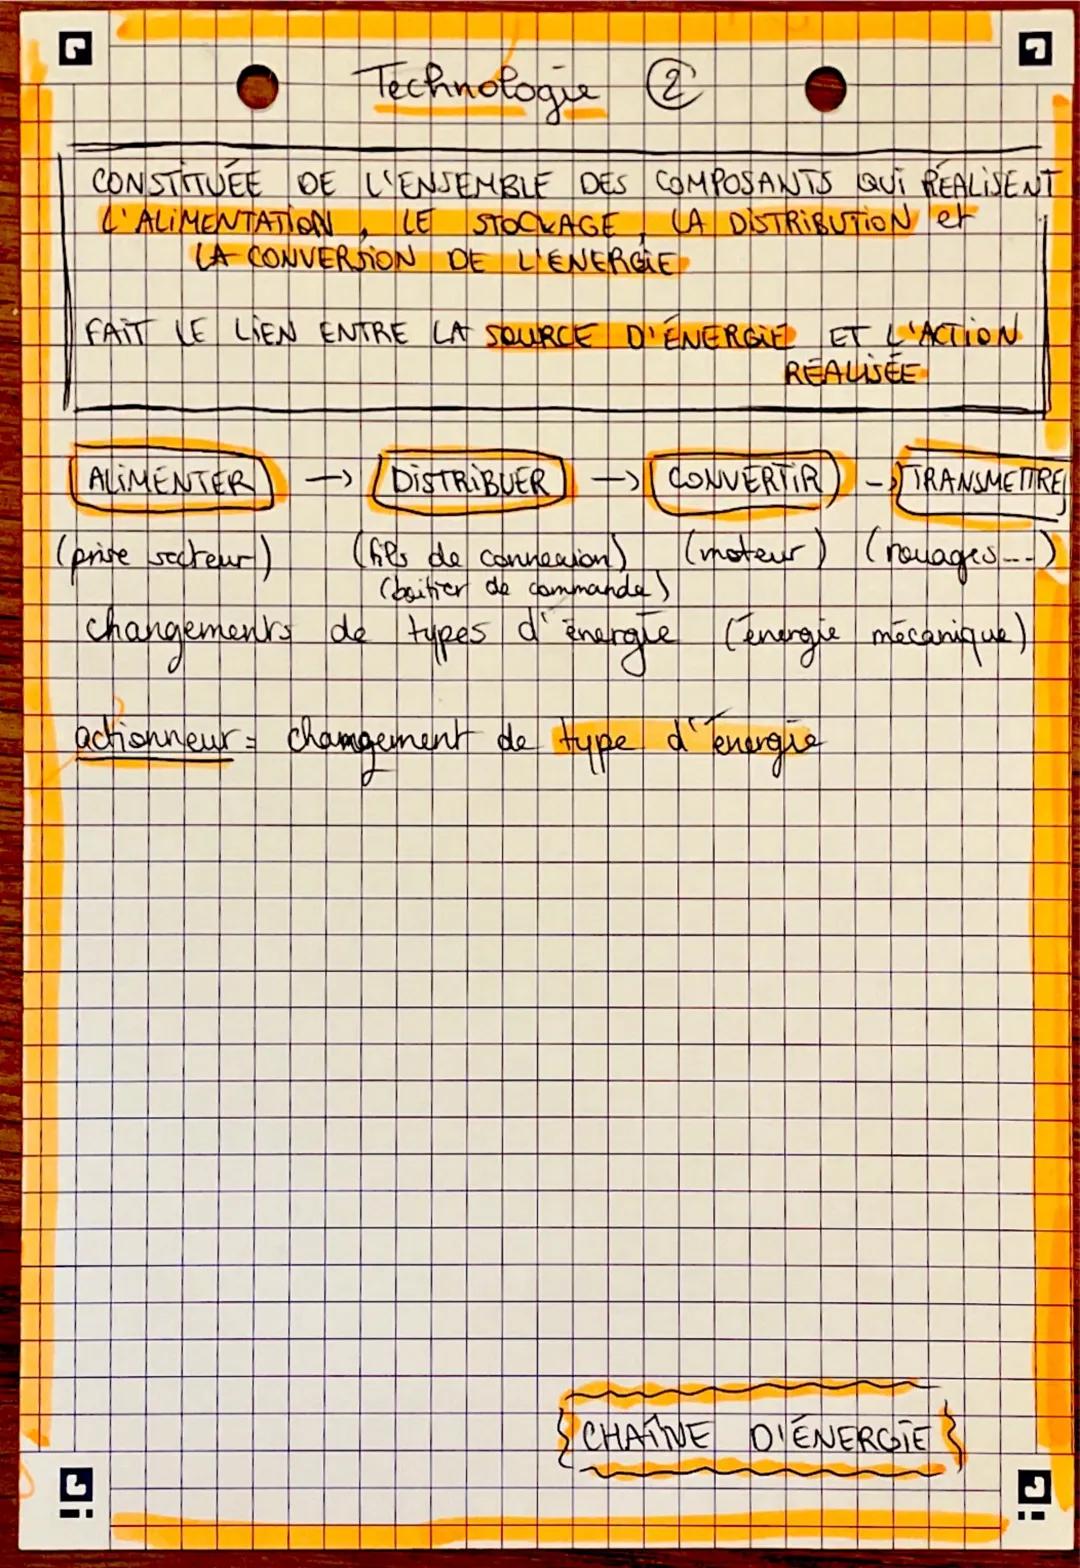 Technologie ②
CONSTITUÉE DE L'ENSEMBLE DES COMPOSANTS QUI RÉALISENT
L'ALIMENTATION, LE STOCKAGE, LA DISTRIBUTION et
LA CONVERSION DE L'ÉNERGIE
FAIT LE LIEN ENTRE LA SOURCE D'ÉNERGIE ET L'ACTION
RÉALISÉE
ALIMENTER → DISTRIBUER → CONVERTIR → TRANSMETTRE
(prise secteur) (fils de connexion) (moteur) (rouages...)
(boîtier de commande)
changements de types d'énergie (énergie mécanique)
actionneur = changement de type d'énergie
CHAÎNE D'ÉNERGIE